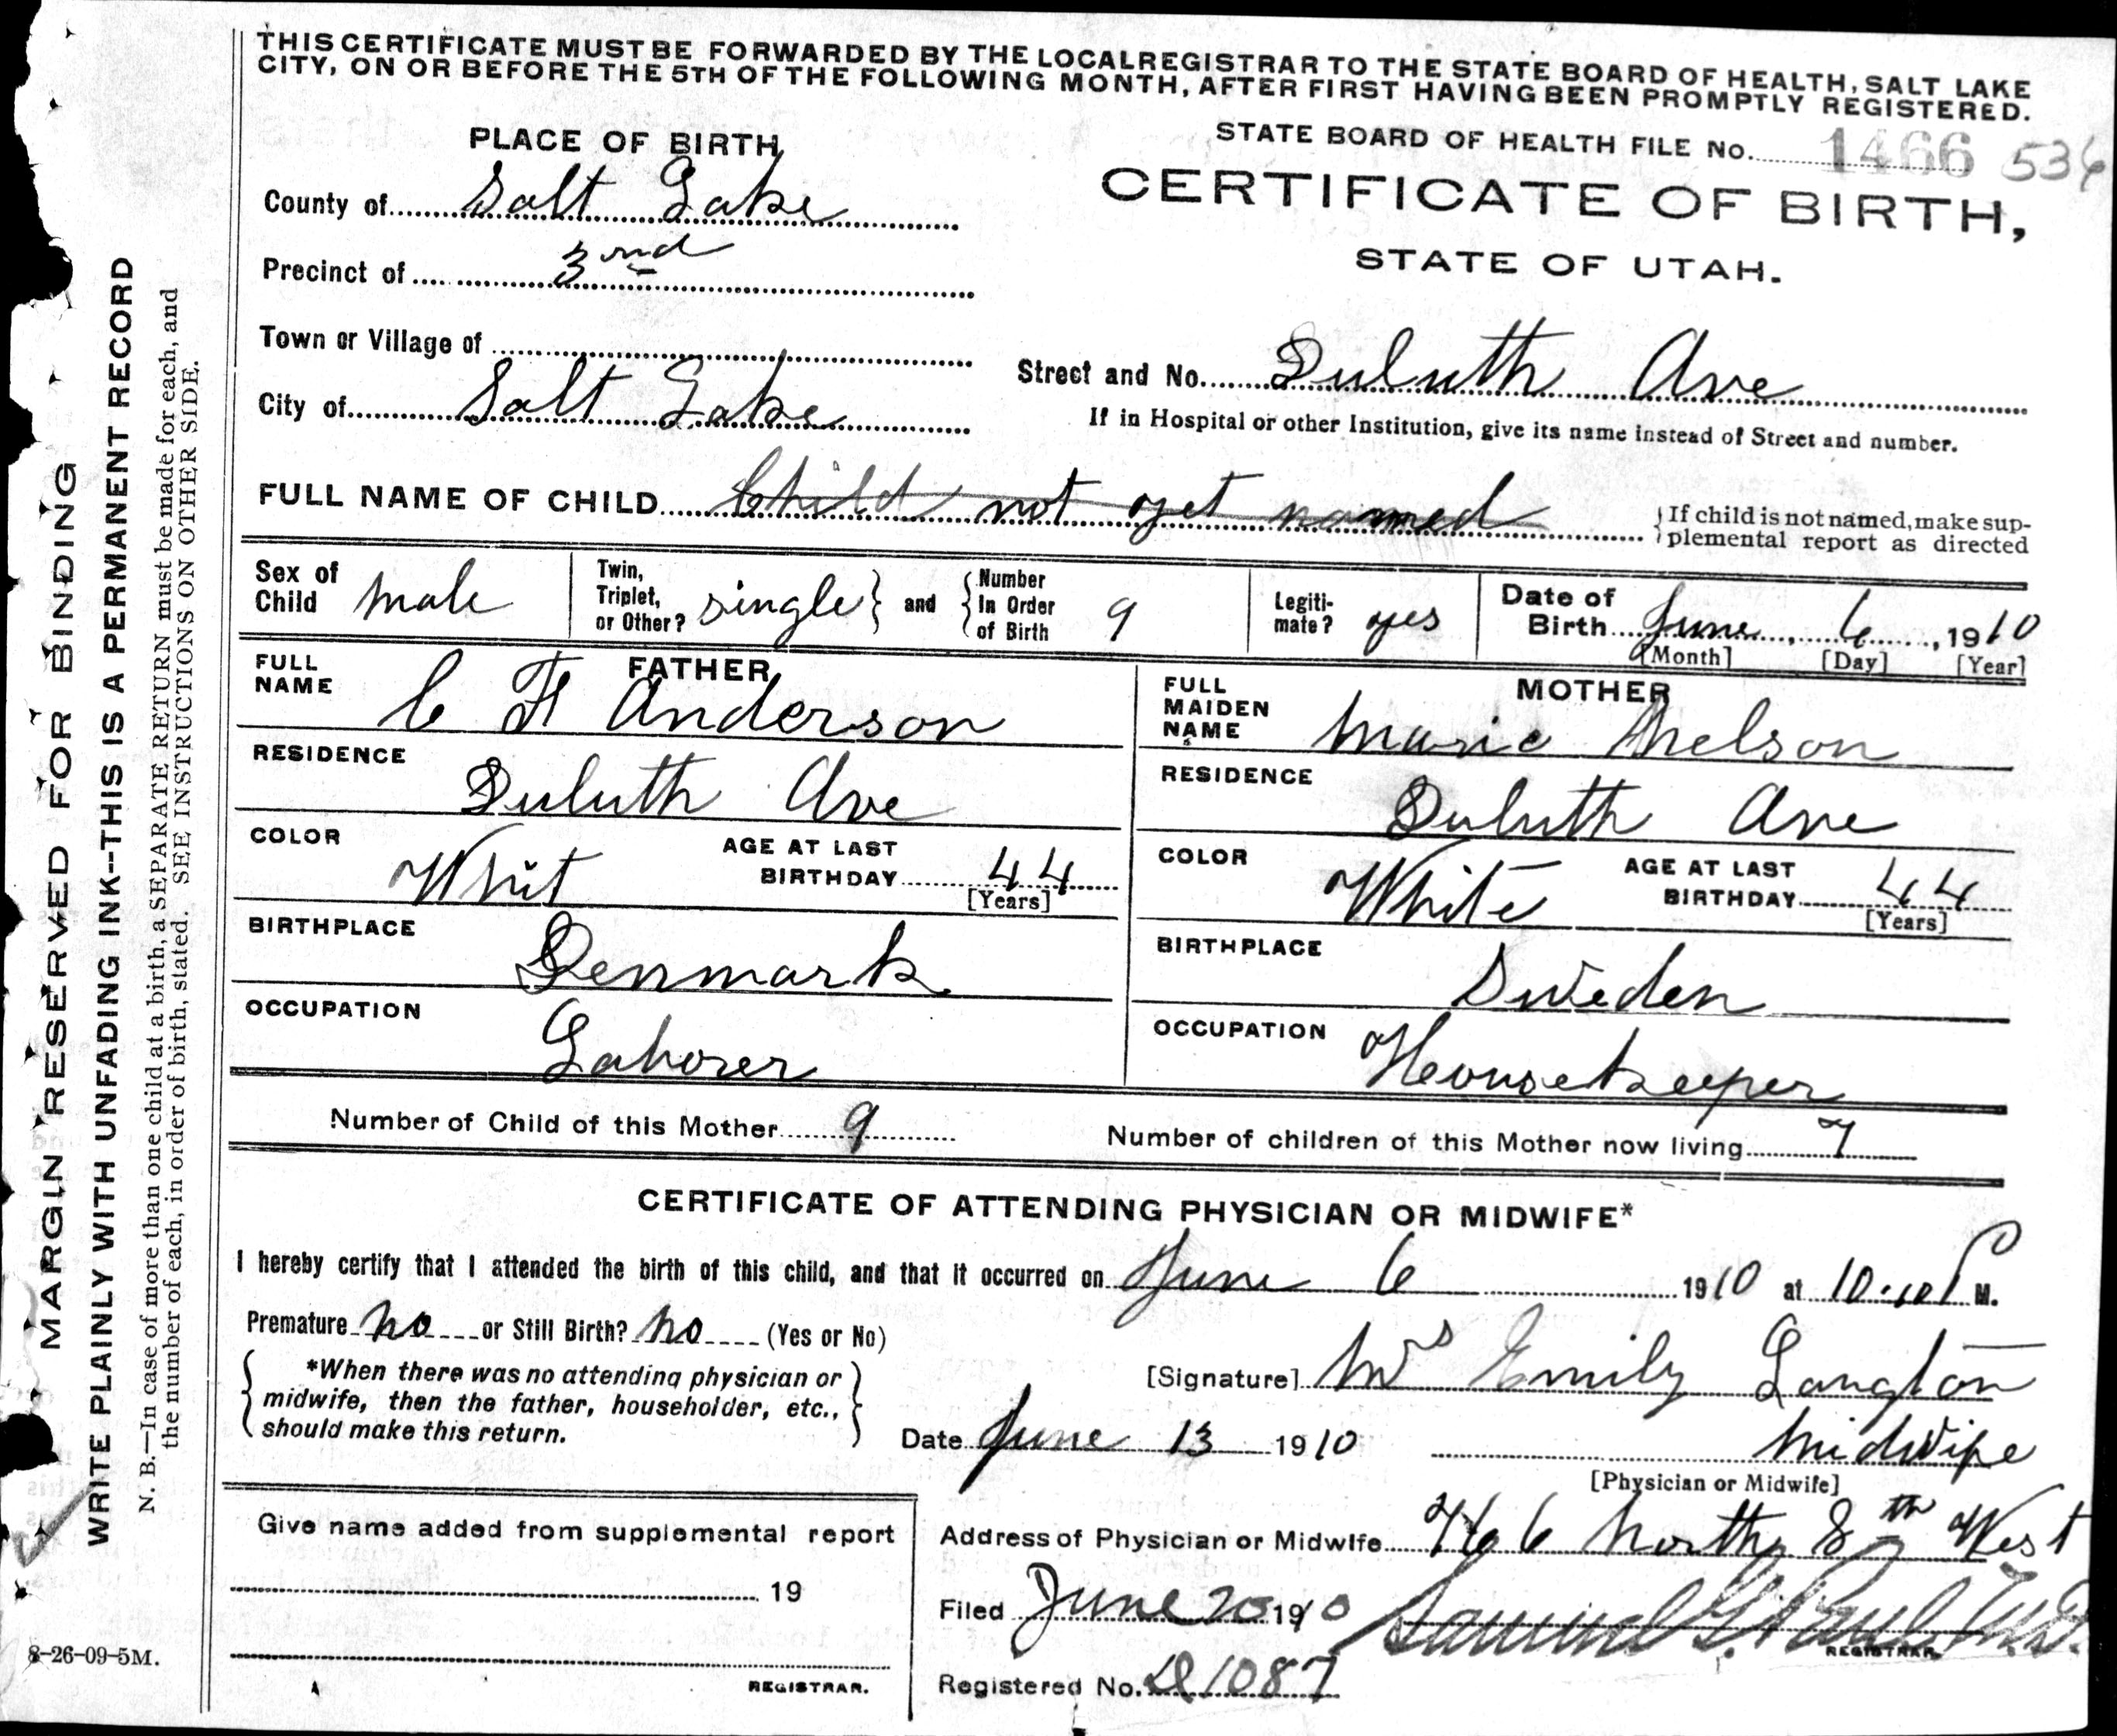 THIS CERTIFICATE MUST BE FORWARDED BY THE LOCAL REGISTRAR TO THE STATE BOARD OF HEALTH, SALT LAKE
CITY, ON OR BEFORE THE 5TH OF THE FOLLOWING MONTH, AFTER FIRST HAVING BEEN PROMPTLY REGISTERED.
PLACE OF BIRTH
STATE BOARD OF HEALTH FILE No. 1466 536
County of Salt Lake
CERTIFICATE OF BIRTH,
Precinct of 3nd
STATE OF UTAH.
Town or Village of
Street and No. Duluth Ave
City of Salt Lake
If in Hospital or other Institution, give its name instead of Street and number.
FULL NAME OF CHILD Child not yet named
If child is not named, make sup-
plemental report as directed
Sex of Child male
Twin, Triplet, or Other? single and Number In Order of Birth 9
Legiti-mate? yes
Date of Birth June, 6, 1910
[Month] [Day] [Year]
FATHER
FULL NAME C F Anderson
RESIDENCE Duluth Ave
COLOR Whit
AGE AT LAST BIRTHDAY 44
[Years]
BIRTHPLACE Denmark
OCCUPATION Laborer
MOTHER
FULL MAIDEN NAME Marie Nelson
RESIDENCE Duluth Ave
COLOR White
AGE AT LAST BIRTHDAY 44
[Years]
BIRTHPLACE Sweden
OCCUPATION Housekeeper
Number of Child of this Mother 9
Number of children of this Mother now living 7
CERTIFICATE OF ATTENDING PHYSICIAN OR MIDWIFE*
I hereby certify that I attended the birth of this child, and that it occurred on June 6 1910 at 10.10 P M.
Premature no or Still Birth? no (Yes or No)
*When there was no attending physician or
midwife, then the father, householder, etc.,
should make this return.
[Signature] Mrs Emily Langton
Date June 13 1910
Midwife
[Physician or Midwife]
Give name added from supplemental report
19
REGISTRAR.
Address of Physician or Midwife 766 North 8th West
Filed June 20 1910 Samuel G. Paul M.D.
REGISTRAR.
Registered No. D1087
8-26-09-5M.
MARGIN RESERVED FOR BINDING
WRITE PLAINLY WITH UNFADING INK--THIS IS A PERMANENT RECORD
N. B.—In case of more than one child at a birth, a SEPARATE RETURN must be made for each, and
the number of each, in order of birth, stated. SEE INSTRUCTIONS ON OTHER SIDE.